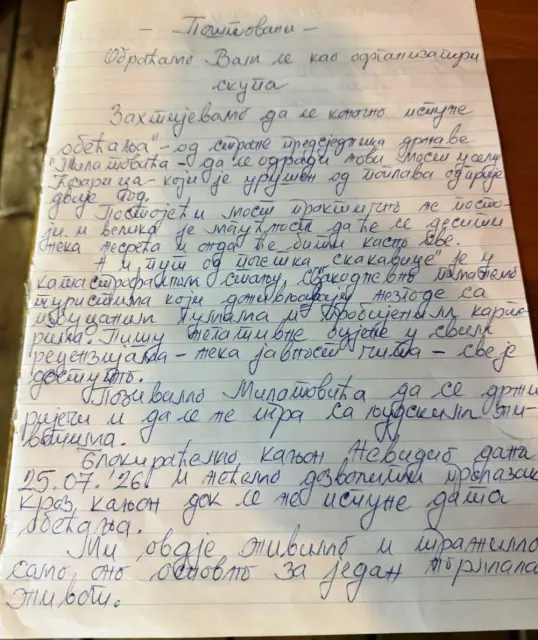 - Поштовани -
Обраћамо Вам се као организатори
скупа
Захтијевамо да се коначно испуне
"обећања" - од стране предсједника државе
"Милатовића - да се одради нови мост у селу
- који је урушен од поплава од прије
двије год.
Постојећи мост практично не посто-
ји и велика је могућност да ће се десити
нека несрећа и онда ће бити касно све.
А и пут од "скакавице" је у
катастрофалном стању. Свакодневно помажемо
туристима који доживљавају незгоде са
пумпама и пробијеним карте-
рима. Пишу негативне у својим
рецензијама - нека јавност чита - све је
доступно.
Позивамо Милатовића да се држи
ријечи и да се не игра са људским жи-
вотима.
Блокираћемо кањон Невидио дана
25.07.'26 и нећемо дозволити пролазак
кроз кањон док се не испуне дата
обећања.
Ми овдје живимо и тражимо
само оно основно за један нормалан
живот.